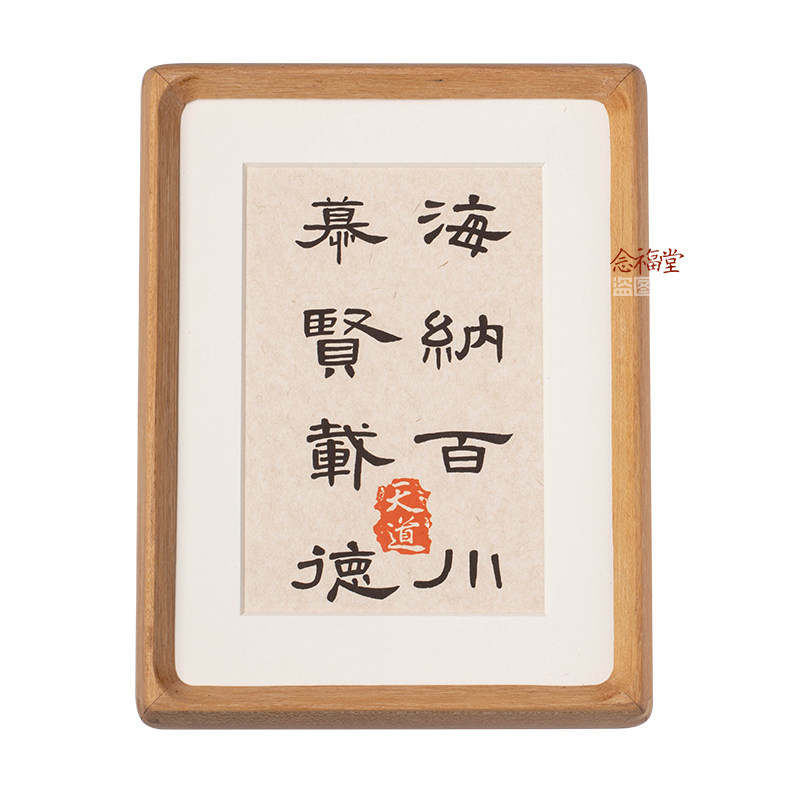 海納百川
慕賢載德
天道
念福堂
盗图